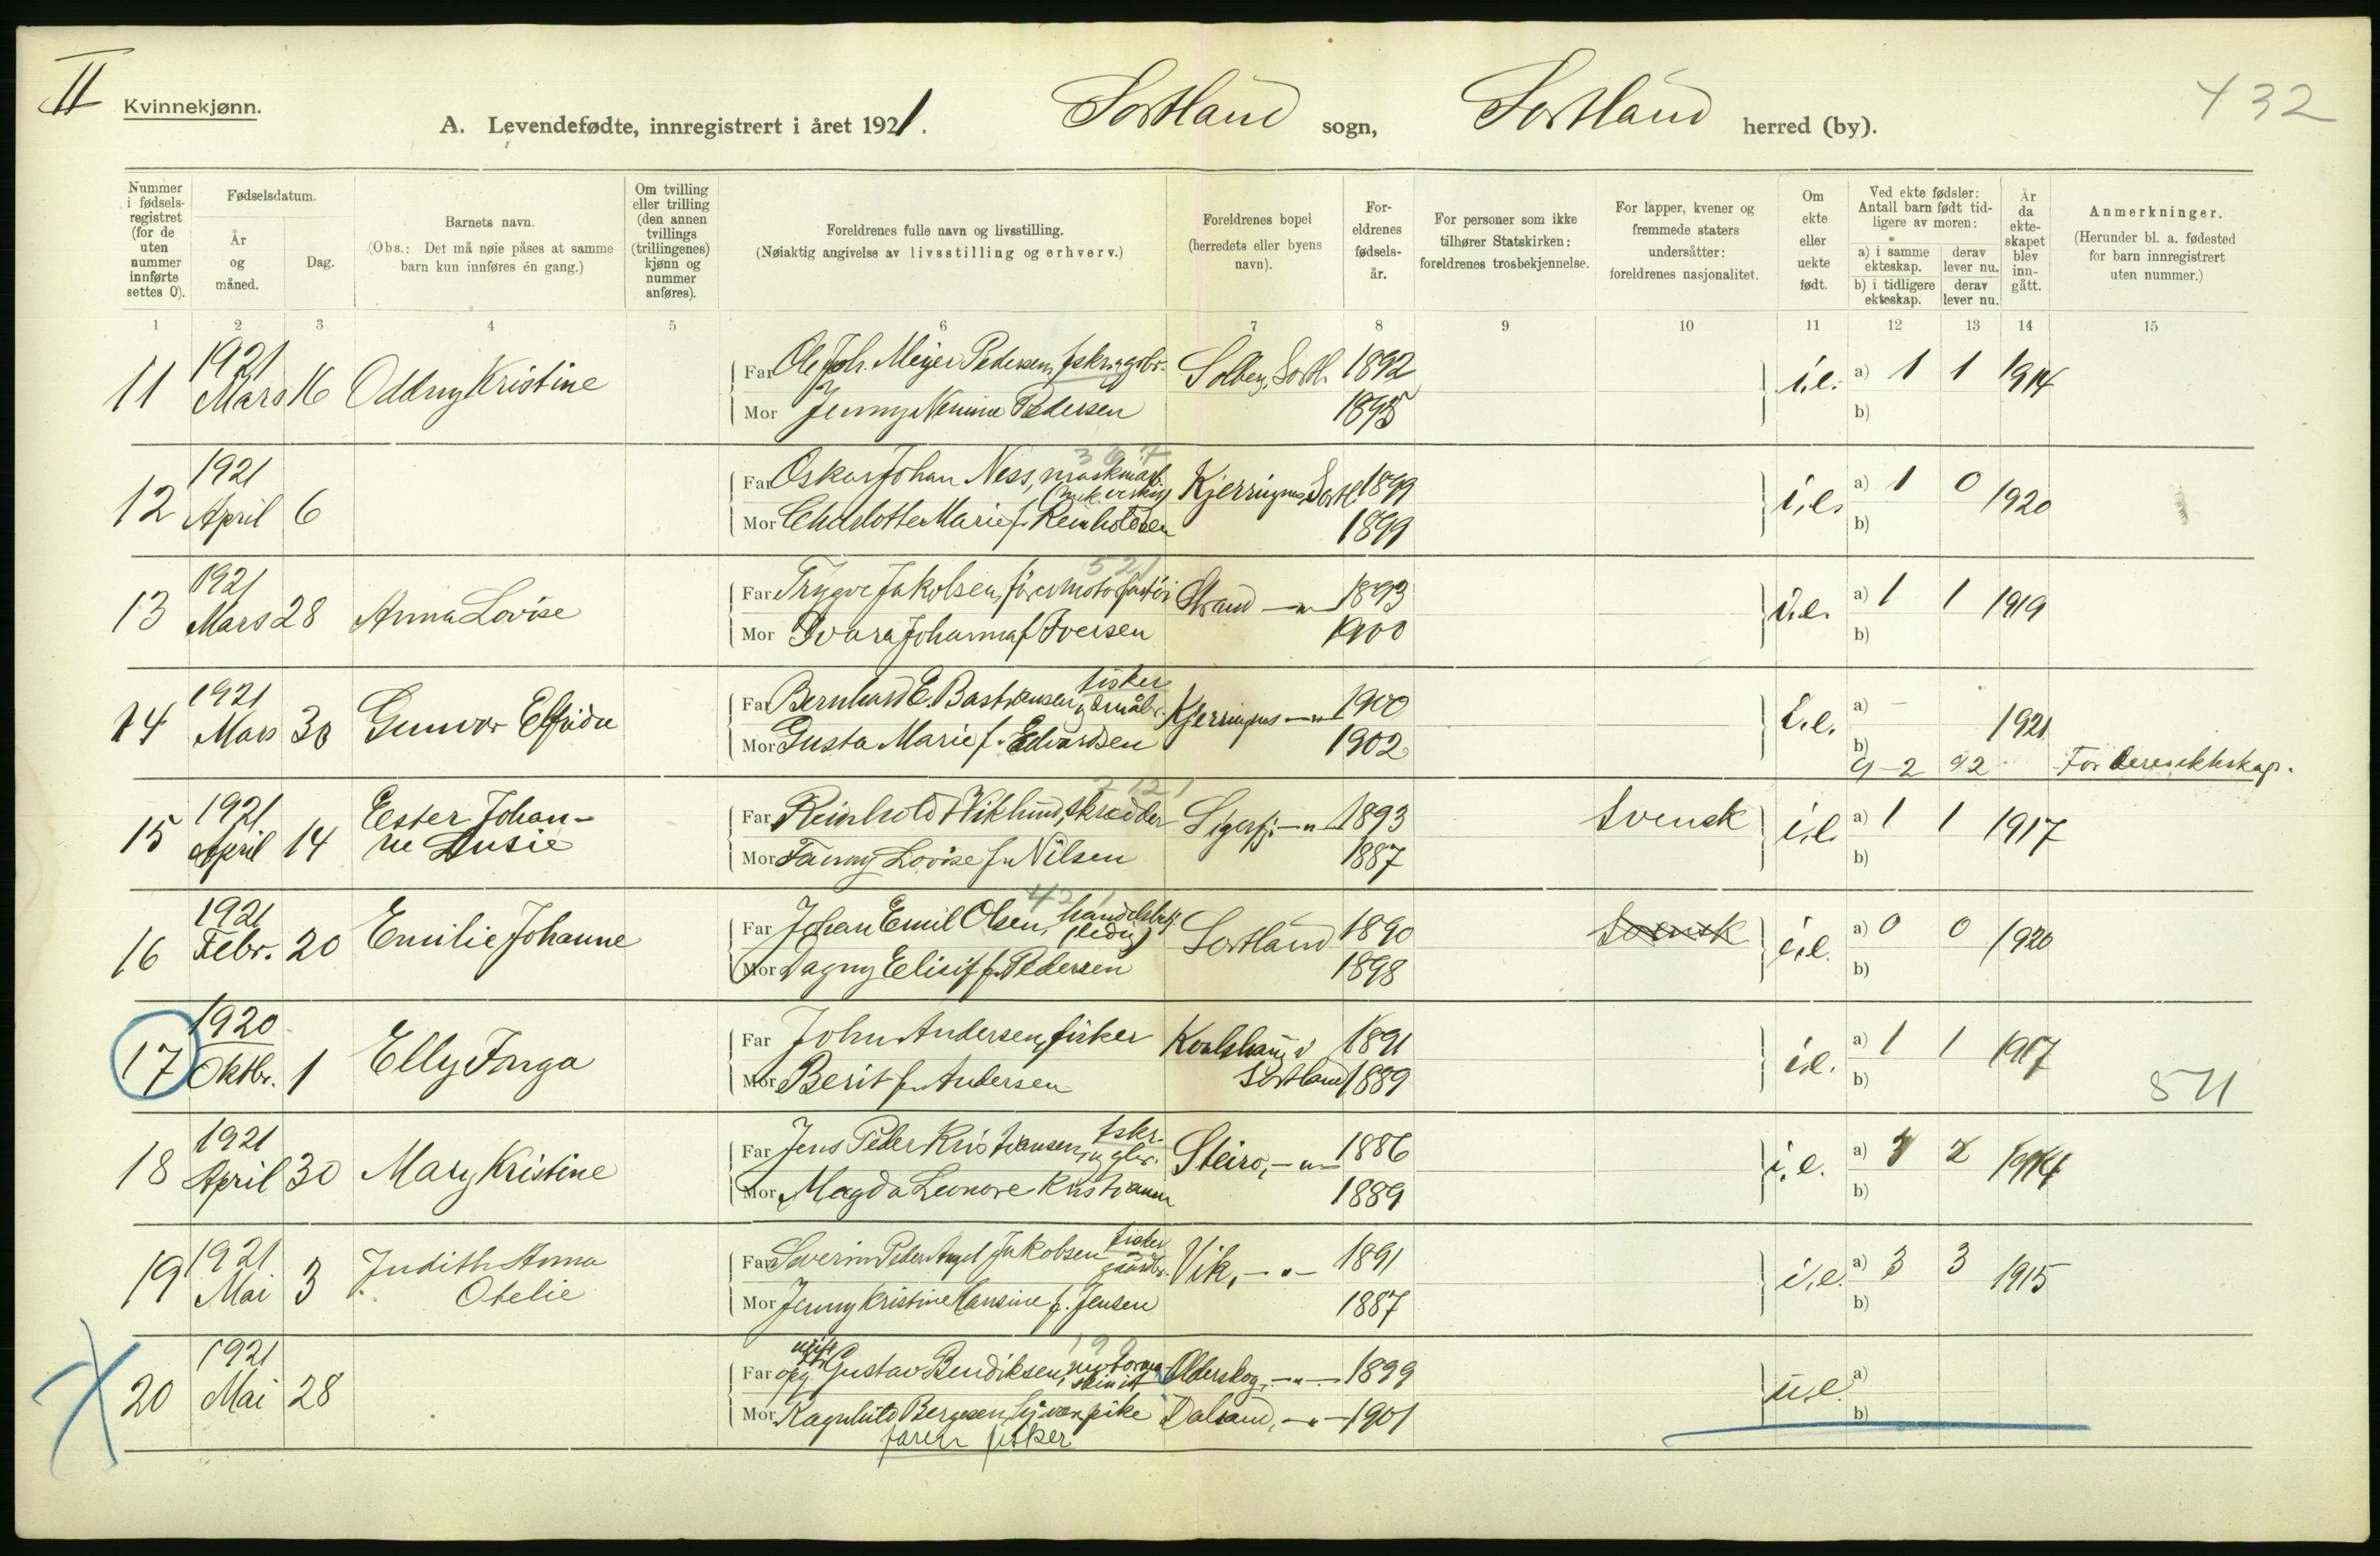 II
Kvinnekjønn.
432
A. Levendefødte, innregistrert i året 1921. Sortland sogn, Sortland herred (by).
Nummer i fødsels-registret (for de uten nummer innførte settes 0).
Fødselsdatum.
År og måned.
Dag.
Barnets navn.
(Obs.: Det må nøie påses at samme barn kun innføres én gang.)
Om tvilling eller trilling (den annen tvillings (trillingenes) kjønn og nummer anføres).
Foreldrenes fulle navn og livsstilling.
(Nøiaktig angivelse av livsstilling og erhverv.)
Foreldrenes bopel (herredets eller byens navn).
For-eldrenes fødsels-år.
For personer som ikke tilhører Statskirken: foreldrenes trosbekjennelse.
For lapper, kvener og fremmede staters undersåtter: foreldrenes nasjonalitet.
Om ekte eller uekte født.
Ved ekte fødsler: Antall barn født tid-ligere av moren:
a) i samme ekteskap.
derav lever nu.
b) i tidligere ekteskap.
derav lever nu.
År da ekte-skapet blev inn-gått.
Anmerkninger.
(Herunder bl. a. fødested for barn innregistrert uten nummer.)
1 2 3 4 5 6 7 8 9 10 11 12 13 14 15
11 1921 Mars 16 Oddny Kristine
Far Ole Joh. Meyer Pedersen, fskr. og gbr. Solberg, Sortl. 1892 i.e. a) 1 1 1914
Mor Jenny Nenine Pedersen 1895 b)
367
12 1921 April 6
Far Oskar Johan Ness, maskinarb. (mek. verksted) Kjerringnes, Sortl. 1899 i.e. a) 1 0 1920
Mor Charlotte Marie f. Reinholdsen 1899 b)
521
13 1921 Mars 28 Anna Lovise
Far Trygve Jakobsen, fører motorfartøi Strand —"— 1893 i.e. a) 1 1 1919
Mor Ivara Johanna f. Iversen 1900 b)
14 1921 Mars 30 Gunvor Elfrida
Far Bernhard E. Bastiansen fisker og småbr. Kjerringnes —"— 1900 i.e. a) – 1921
Mor Gusta Marie f. Edvardsen 1902 b)
9-2 92 Før deres ekteskap.
2121
15 1921 April 14 Ester Johan-
ne Lusie
Far Reinhold Wiklund, skredder Sigerfj. —"— 1893 Svensk i.e. a) 1 1 1917
Mor Fanny Lovise f. Nilsen 1887 b)
421
16 1921 Febr. 20 Emilie Johanne
Far Johan Emil Olsen, handelsbetj. (ledig) Sortland 1890 Svensk i.e. a) 0 0 1920
Mor Dagny Elisif f. Pedersen 1898 b)
17 1920 Oktbr. 1 Elly Inga
Far John Andersen, fisker 1891 i.e. a) 1 1 1917
Mor Berit f. Andersen Sortland 1889 b)
511
18 1921 April 30 Mary Kristine
Far Jens Peder Kristiansen, fskr. og gbr. Steiro, —"— 1886 i.e. a) 2 1914
Mor Magda Leonore Kristiansen 1889 b)
19 1921 Mai 3 Judith Anna
Otelie
Far Severin Peder Angel Jakobsen fisker gaardbr. Vik, —"— 1891 i.e. a) 3 3 1915
Mor Jenny Kristine Hansine f. Jensen 1887 b)
20 1921 Mai 28
Far opg. Gustav Bendiksen, motormaskinist Olderskog, —"— 1899 u.e. a)
Mor Ragnhild Bergesen, pike Dalsand, —"— 1901 b)
faren fisker